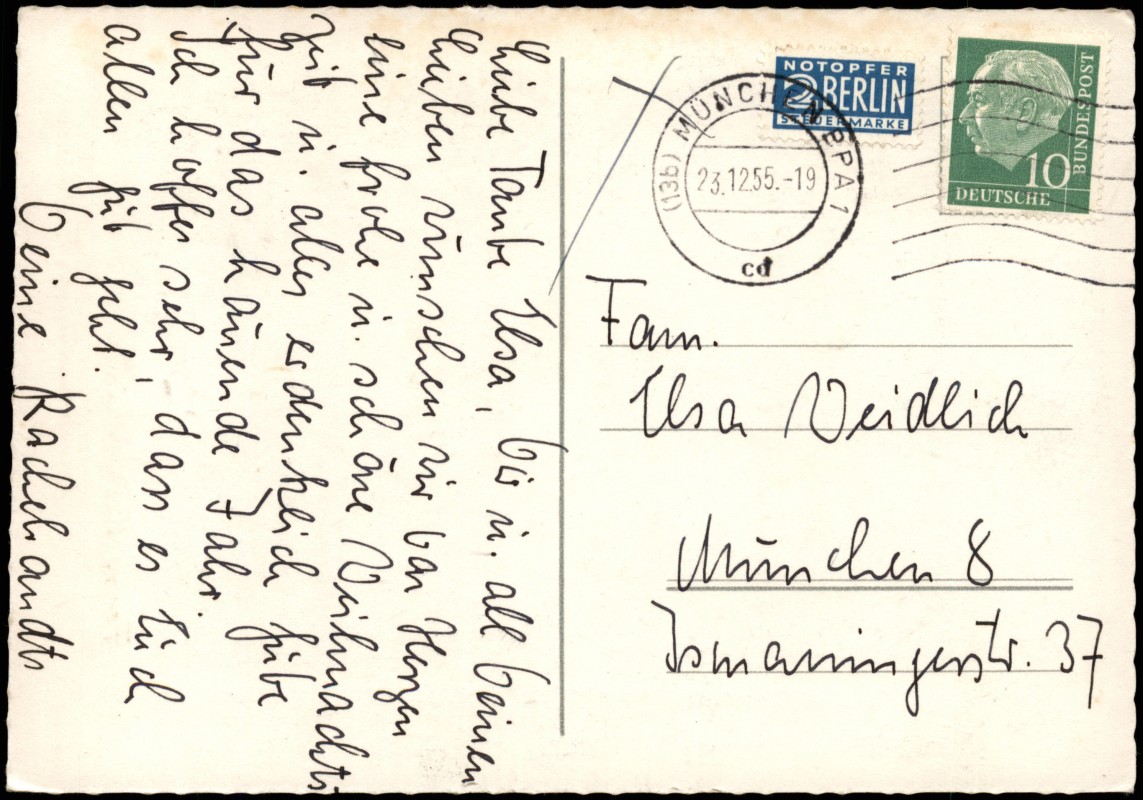 Liebe Tante Elsa, Dir u. all Deinen
Lieben wünschen wir von Herzen
eine frohe u. schöne Weihnachts-
zeit u. alles erdenklich Gute
für das kommende Jahr.
Ich hoffe sehr, dass es Euch
allen gut geht.
Deine
NOTOPFER
2 BERLIN
STEUERMARKE
(13b) MÜNCHEN BPA 1
23.12.55.-19
cd
10
DEUTSCHE
BUNDESPOST
Fam.
Elsa Weidlich
München 8
Ismaningerstr. 37